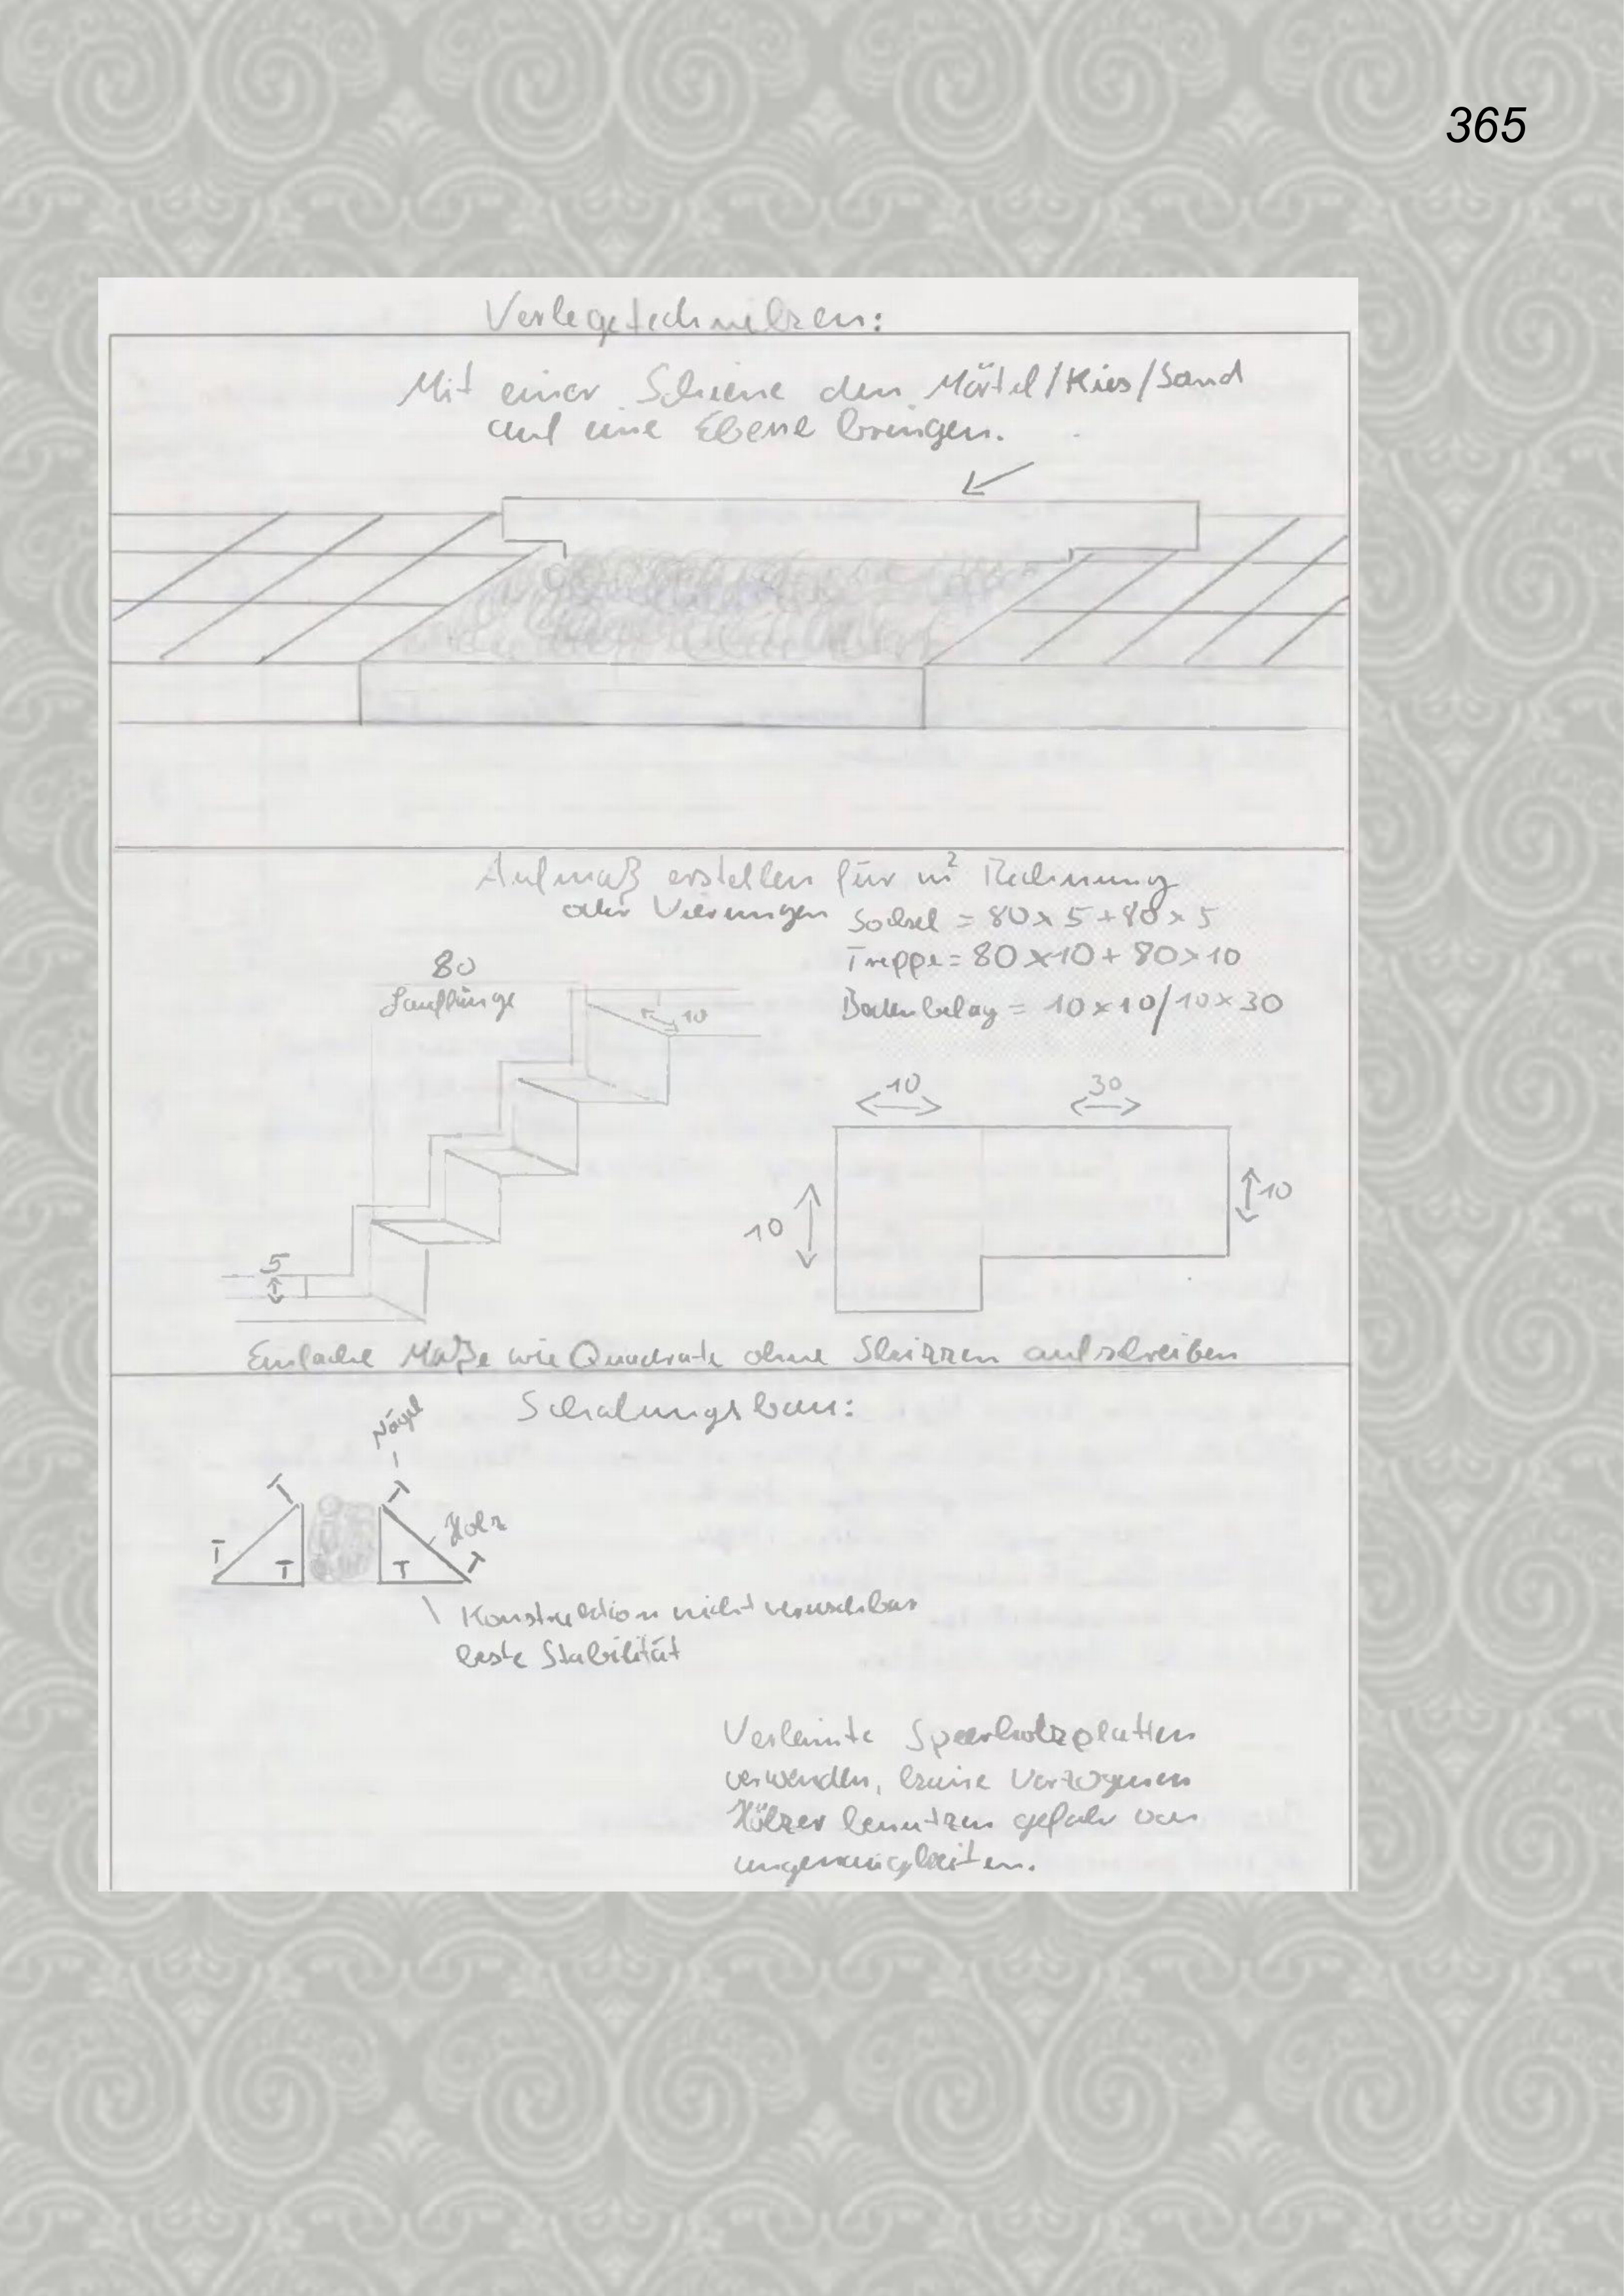 365
Verlegetechniken:
Mit einer Schiene den Mörtel/Kies/Sand
auf eine Ebene bringen.
Aufmaß erstellen für m² Rechnung
oder Vierungen
Sockel = 80x5+80x5
Treppe = 80x10+80x10
Bodenbelag = 10x10/10x30
80
Lauflänge
10
5
10
30
10
10
Einfache Maße wie Quadrate ohne Skizzen aufschreiben
Schalungsbau:
Nägel
Holz
Konstruktion nicht
beste Stabilität
Verleimte Sperrholzplatten
verwenden, keine Verzogenen
Hölzer benutzen gefahr von
ungenauigkeiten.